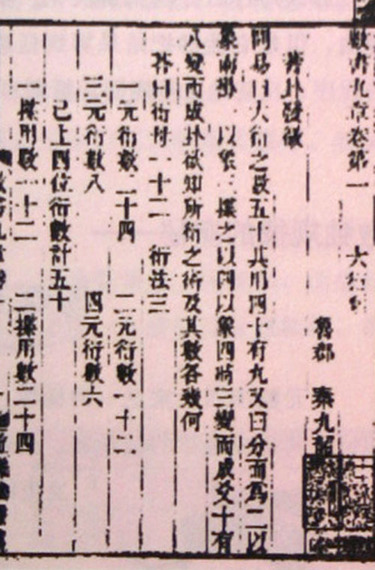 數書九章卷第一 大衍
魯郡 秦九韶
蓍卦發微
問易曰大衍之數五十其用四十有九又曰分而爲二以
象兩掛一以象三揲之以四以象四時三變而成爻十有
八變而成卦欲知所衍之術及其數各幾何
答曰衍母一十二 衍法三
一元衍數二十四 二元衍數一十二
三元衍數八 四元衍數六
已上四位衍數計五十
一揲用數一十二 二揲用數二十四